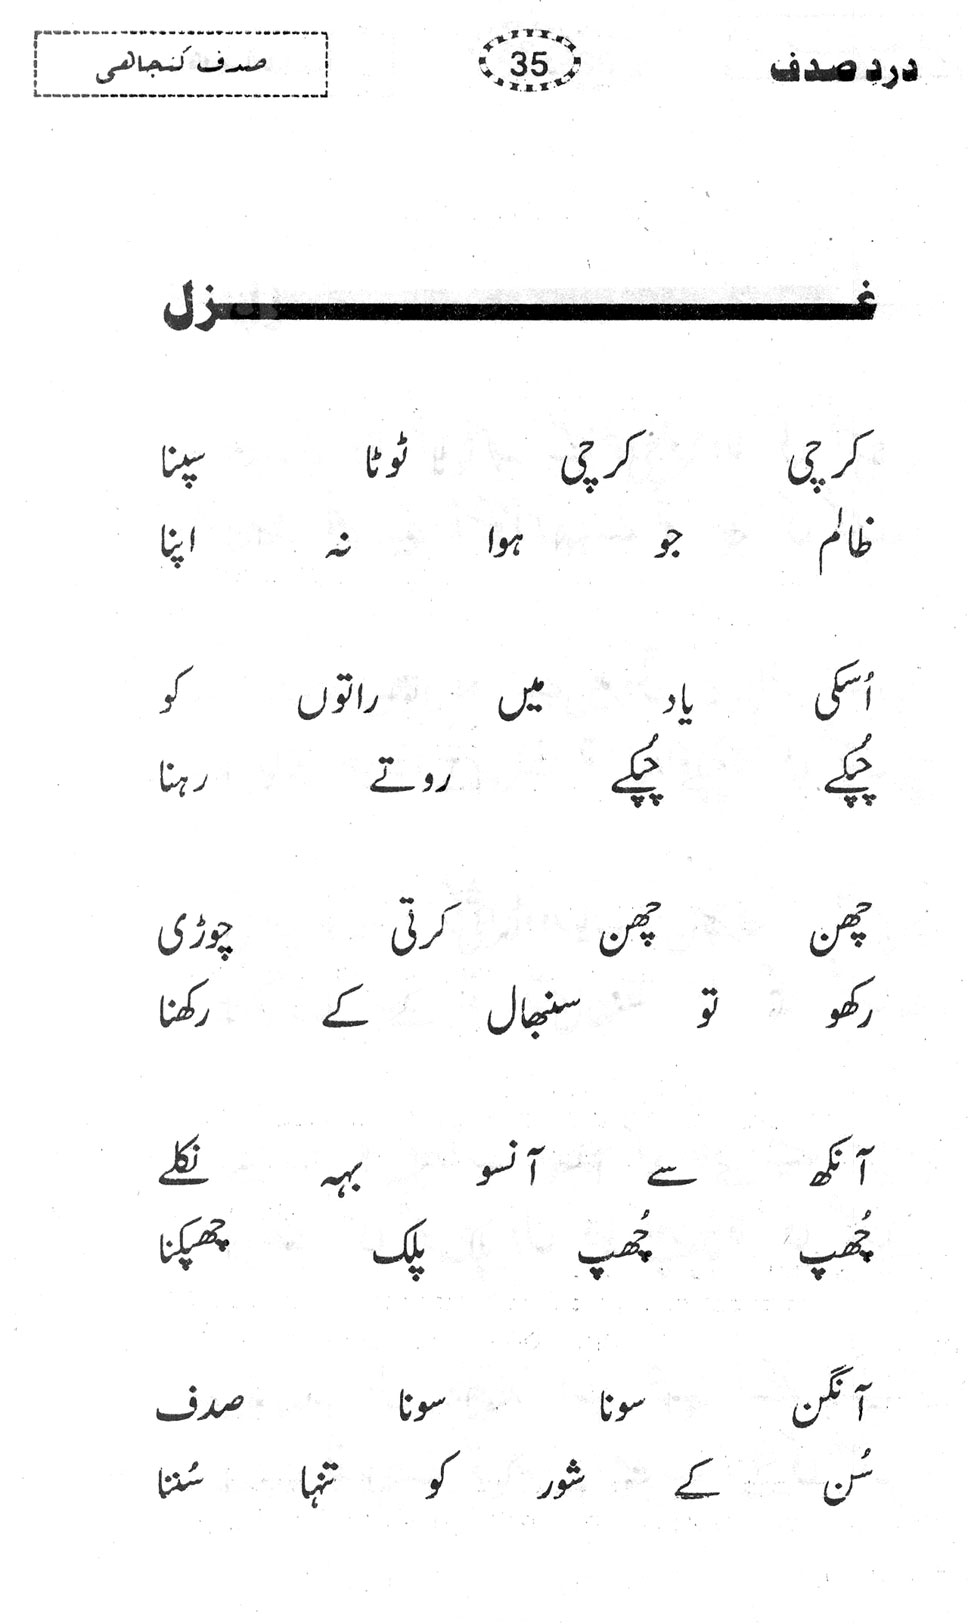 درد صدف 35 صدف کنجاھی
غزل
کرچی کرچی ٹوٹا سپنا
ظالم جو ہوا نہ اپنا
اُسکی یاد میں راتوں کو
چُپکے چُپکے روتے رہنا
چھن چھن کرتی چوڑی
رکھو تو سنبھال کے رکھنا
آنکھ سے آنسو بہہ نکلے
چُھپ چُھپ پلک جھپکنا
آنگن سونا سونا صدف
سُن کے شور کو تنہا سُننا